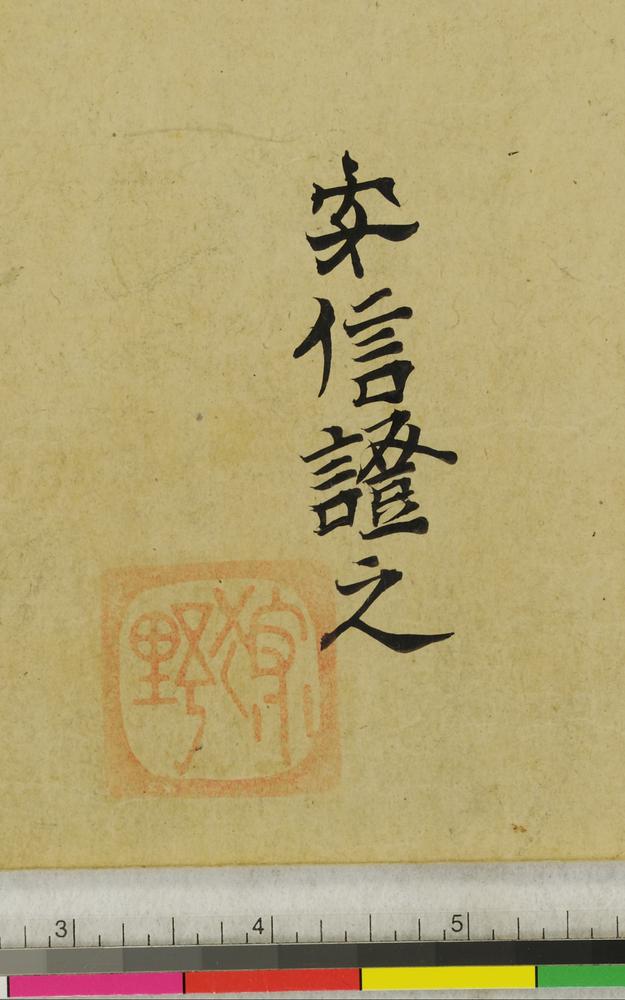 安信證之
狩野
3 4 5